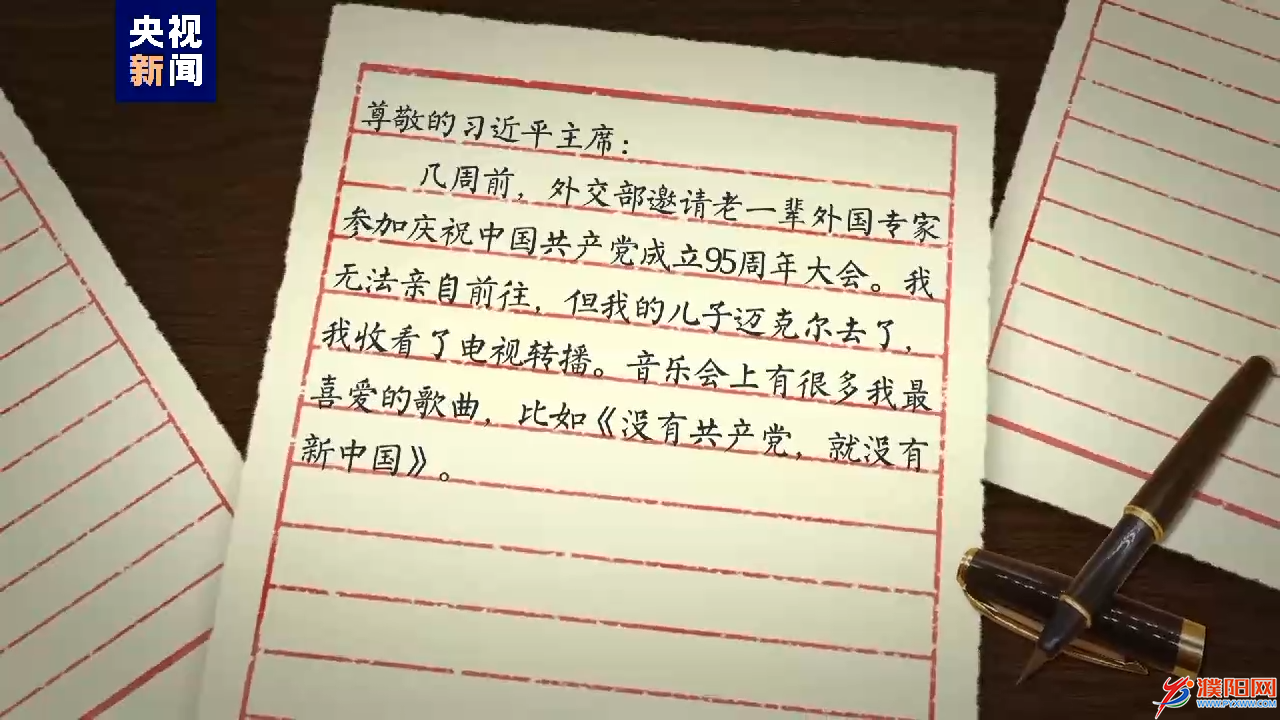 央视
新闻
尊敬的习近平主席：
几周前，外交部邀请老一辈外国专家
参加庆祝中国共产党成立95周年大会。我
无法亲自前往，但我的儿子迈克尔去了，
我收看了电视转播。音乐会上有很多我最
喜爱的歌曲，比如《没有共产党，就没有
新中国》。
濮阳网
WWW.PYXWW.COM